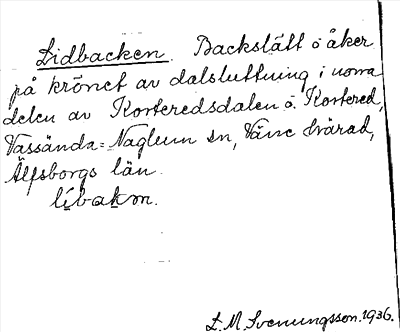 Lidbacken. Backslätt o åker
på krönet av dalsluttning i norra
delen av Korteredsdalen å Kortered,
Vassända-Naglum sn, Väne härad,
Älfsborgs län.
líbakm.
L. M. Svenungsson. 1936.